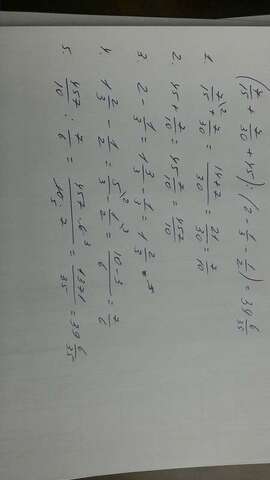 (7/15 + 7/30 + 45) : (2 - 1/3 - 1/2) = 39 6/35
1. 7/15 \2 + 7/30 = 14+7/30 = 21/30 = 7/10
2. 45 + 7/10 = 45 7/10 = 457/10
3. 2 - 1/3 = 1 3/3 - 1/3 = 1 2/3
4. 1 2/3 - 1/2 = 5/3 \2 - 1/2 \3 = 10-3/6 = 7/6
5. 457/10 : 7/6 = 457·6 3/10 5·7 = 1371/35 = 39 6/35